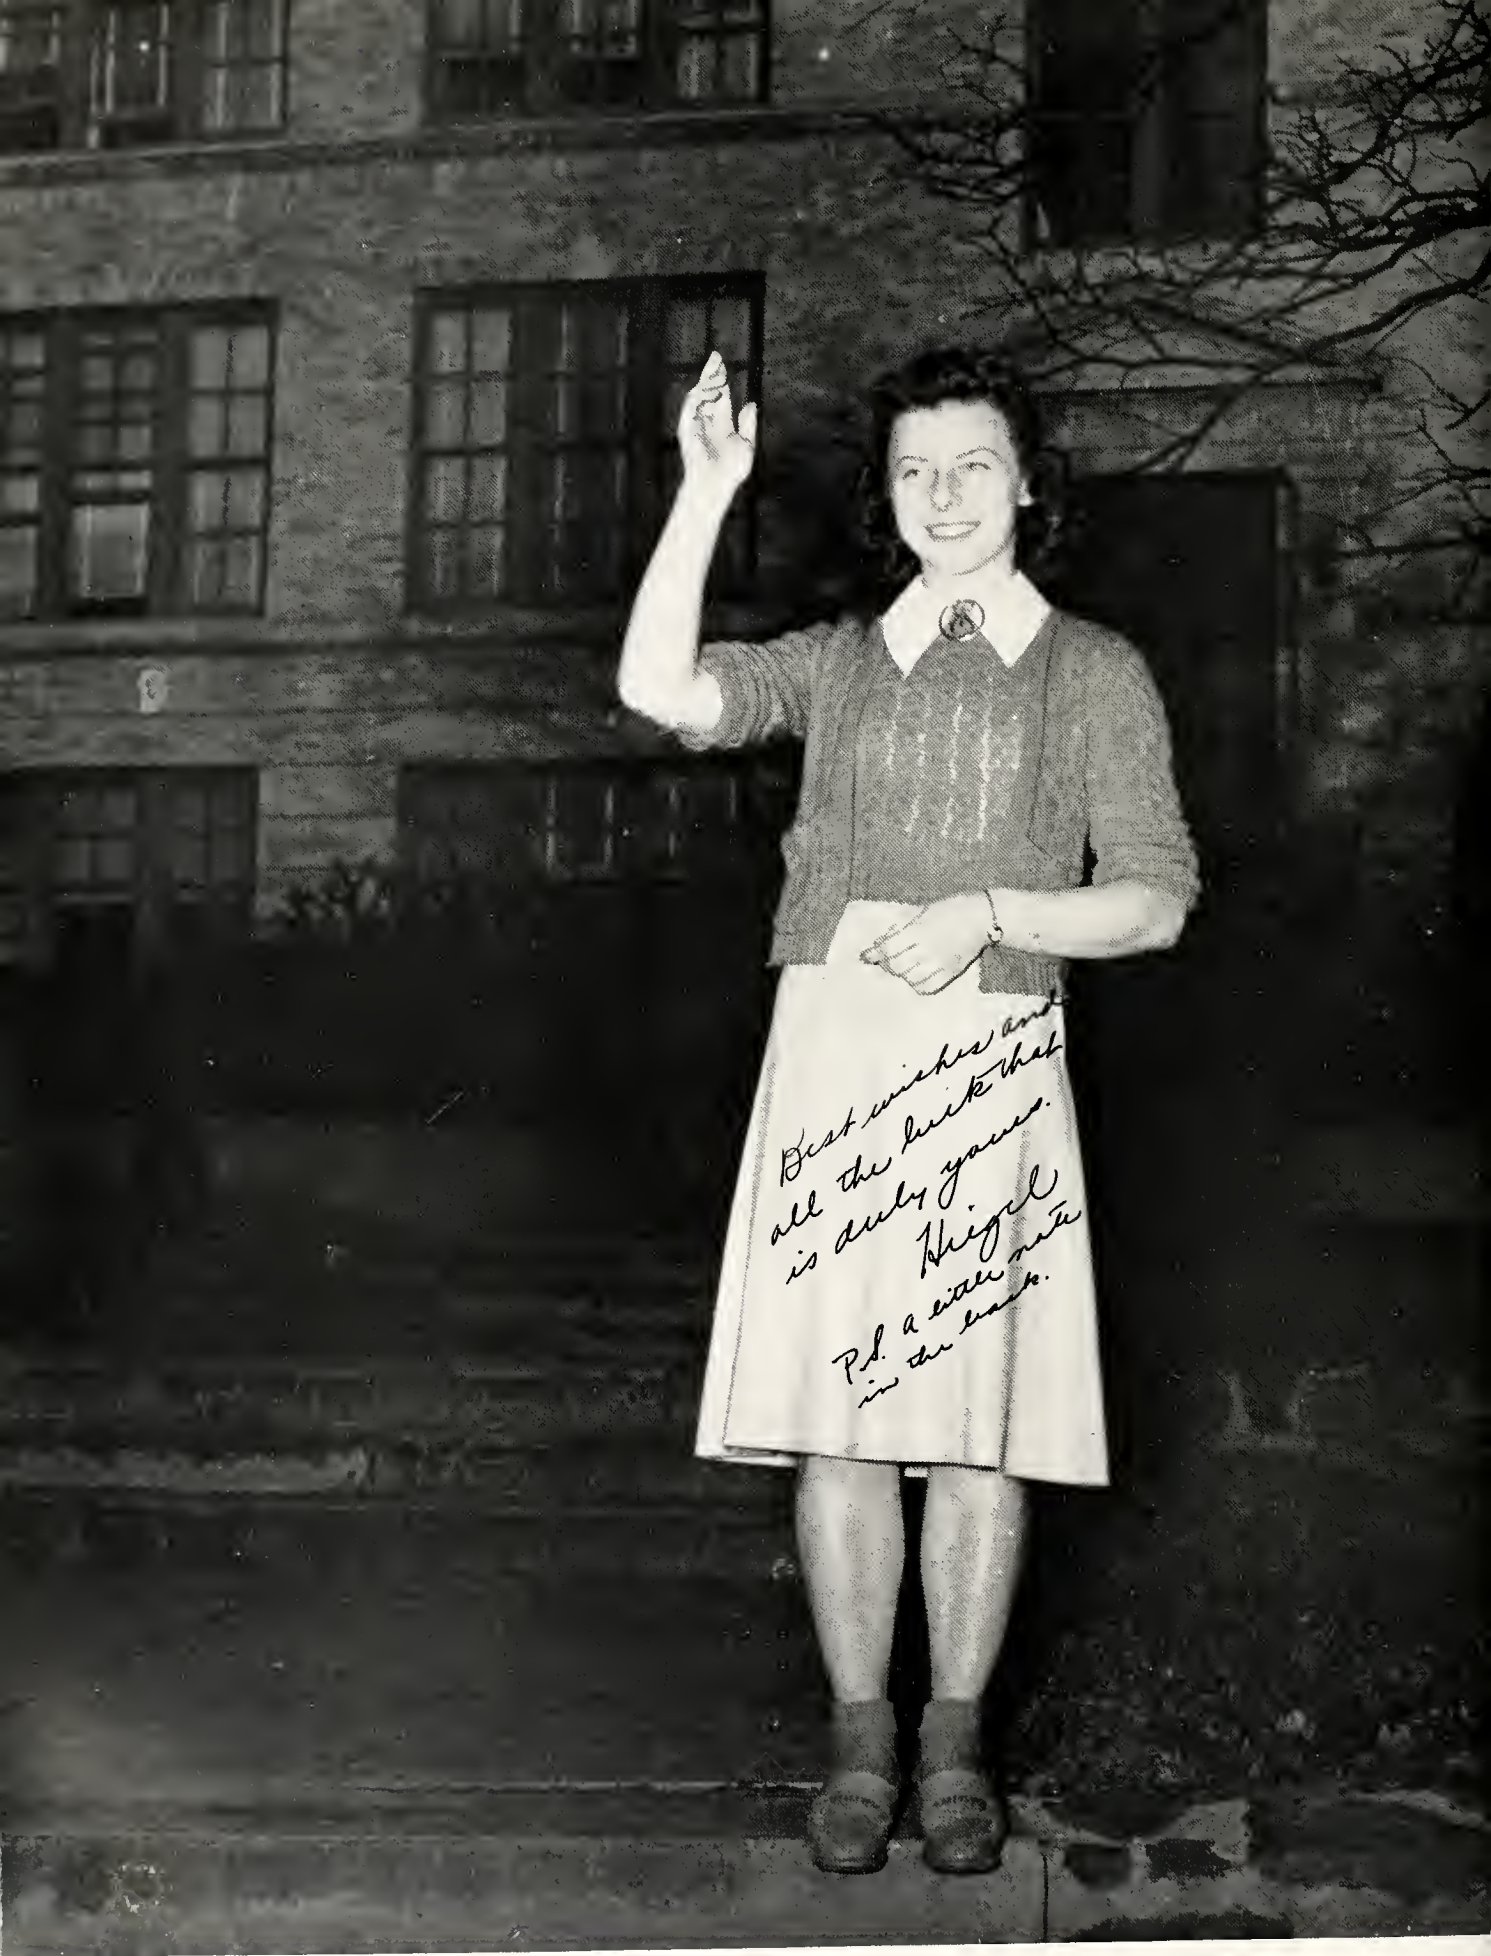 Best wishes and
all the luck that
is duly yours.
Heigel
P.S. a little note
in the back.